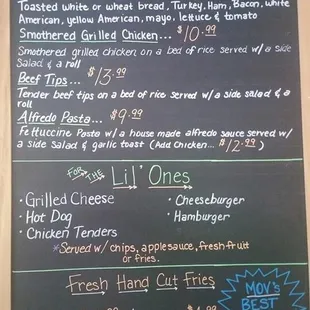 Toasted white or wheat bread, Turkey, Ham, Bacon, white
American, yellow American, mayo, lettuce & tomato
Smothered Grilled Chicken... $10.99
Smothered grilled chicken on a bed of rice served w/ a side
Salad & a roll
Beef Tips... $13.99
Tender beef tips on a bed of rice served w/ a side salad & a
roll
Alfredo Pasta... $9.99
Fettuccine Pasta w/ a house made alfredo sauce served w/
a side Salad & garlic toast (Add Chicken... $12.99)
FOR THE Lil' Ones
• Grilled Cheese
• Cheeseburger
• Hot Dog
• Hamburger
• Chicken Tenders
*Served w/ chips, applesauce, fresh fruit
or fries.
Fresh Hand Cut Fries
MOV's
BEST